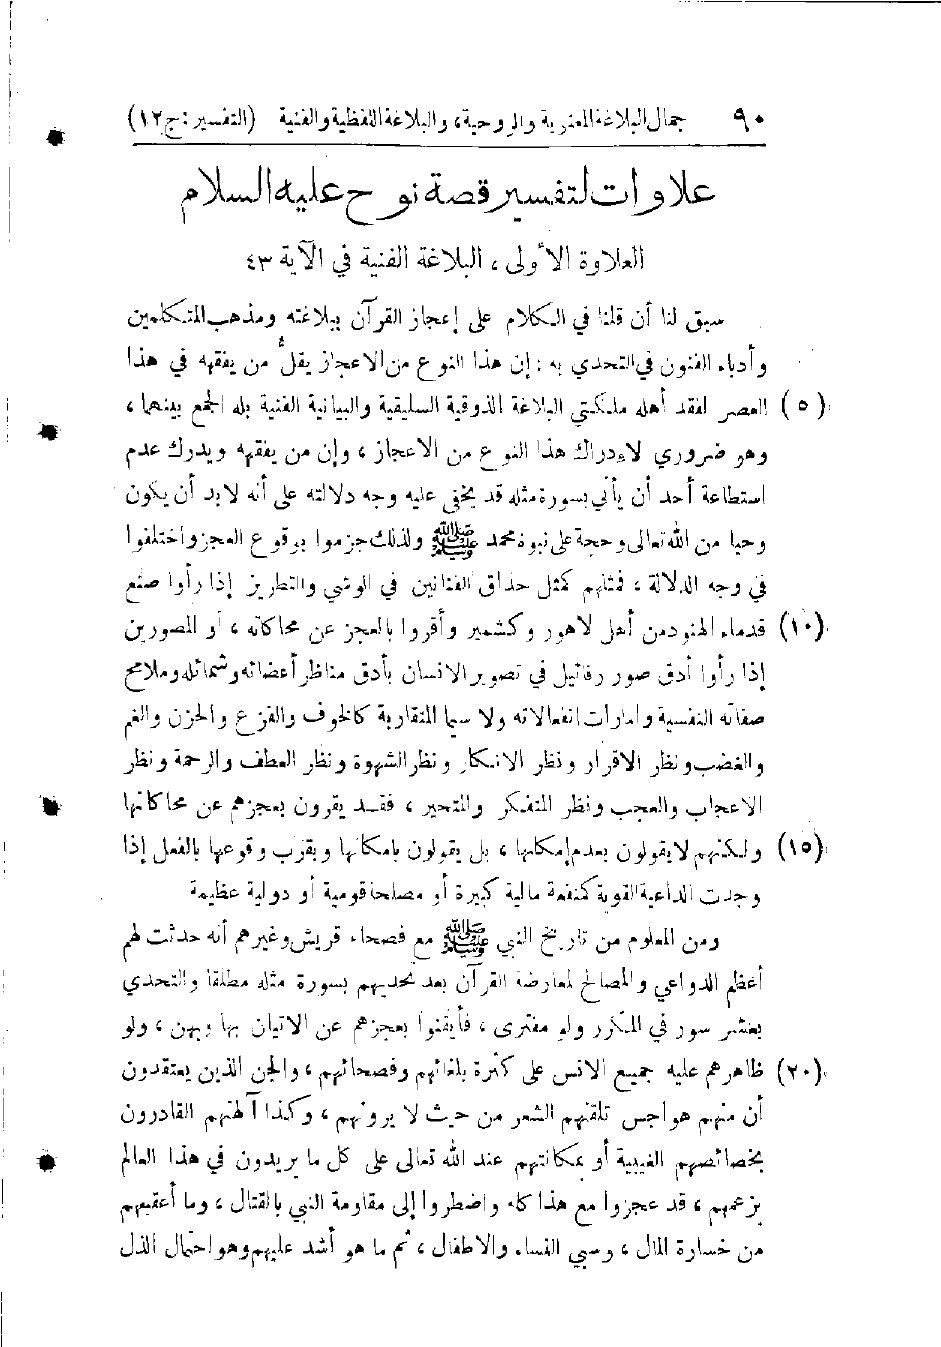 ٩٠ جمال البلاغة المعنوية والروحية، والبلاغة اللفظية والفنية (التفسير: ج ١٢)
علاوات لتفسير قصة نوح عليه السلام
العلاوة الأولى، البلاغة الفنية في الآية ٤٣
سبق لنا أن قلنا في الكلام على إعجاز القرآن ببلاغته ومذهب المتكلمين
وأدباء الفنون في التحدي به : إن هذا النوع من الاعجاز يقلُّ من يفقهه في هذا
(٥) العصر لفقد أهله ملكتي البلاغة الذوقية السليقية والبيانية الفنية بله الجمع بينهما،
وهو ضروري لادراك هذا النوع من الاعجاز، وإن من يفقهه ويدرك عدم
استطاعة أحد أن يأتي بسورة مثله قد يخفى عليه وجه دلالته على أنه لابد أن يكون
وحيا من الله تعالى وحجة على نبوة محمد ﷺ ولذلك جزموا بوقوع العجز واختلفوا
في وجه الدلالة، فمثلهم كمثل حذاق الفنانين في الوشي والتطريز إذا رأوا صنع
(١٠) قدماء الهنود من أهل لاهور وكشمير وأقروا بالعجز عن محاكاته، أو المصورين
إذا رأوا أدق صور رفائيل في تصوير الانسان بأدق مناظر أعضائه وشمائله وملامح
صفاته النفسية وامارات انفعالاته ولا سيما المتقاربة كالخوف والفزع والحزن والغم
والغضب ونظر الاقرار ونظر الانكار ونظر الشهوة ونظر العطف والرحمة ونظر
الاعجاب والعجب ونظر المتفكر والمتحير، فقد يقرون بعجزهم عن محاكاتها
(١٥) ولكنهم لا يقولون بعدم إمكانها، بل يقولون بامكانها وبقرب وقوعها بالفعل إذا
وجدت الداعية القوية كمنفعة مالية كبيرة أو مصلحة قومية أو دولية عظيمة
ومن المعلوم من تاريخ النبي ﷺ مع فصحاء قريش وغيرهم أنه حدثت لهم
أعظم الدواعي والمصالح لمعارضة القرآن بعد تحديهم بسورة مثله مطلقا والتحدي
بعشر سور في المكرر ولو مفترى، فأيقنوا بعجزهم عن الاتيان بها وبهن، ولو
(٢٠) ظاهرهم عليه جميع الانس على كثرة بلغائهم وفصحائهم، والجن الذين يعتقدون
أن منهم هواجس تلقنهم الشعر من حيث لا يرونهم، وكذا آلهتهم القادرون
بخصائصهم الغيبية أو بمكانتهم عند الله تعالى على كل ما يريدون في هذا العالم
بزعمهم، قد عجزوا مع هذا كله واضطروا إلى مقاومة النبي بالقتال، وما أعقبهم
من خسارة المال، وسبي النساء والاطفال، ثم ما هو أشد عليهم وهو احتمال الذل